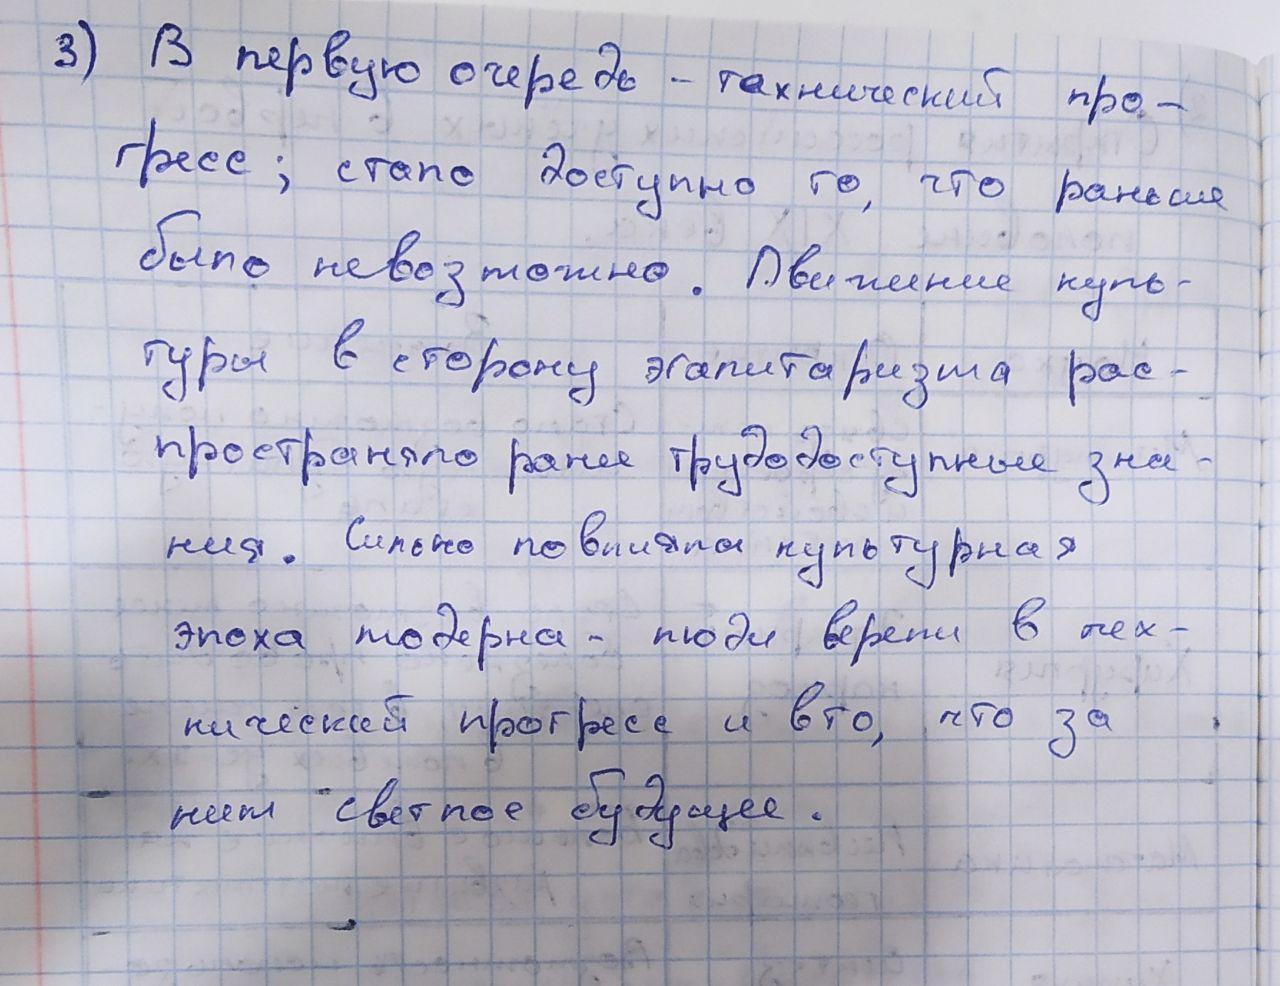 3) В первую очередь - технический про-
гресс; стало доступно то, что раньше
было невозможно. Движение куль-
туры в сторону эгалитаризма рас-
пространяло ранее трудодоступные зна-
ния. Сильно повлияла культурная
эпоха модерна - люди верили в тех-
нический прогресс и в то, что за
ним светлое будущее.